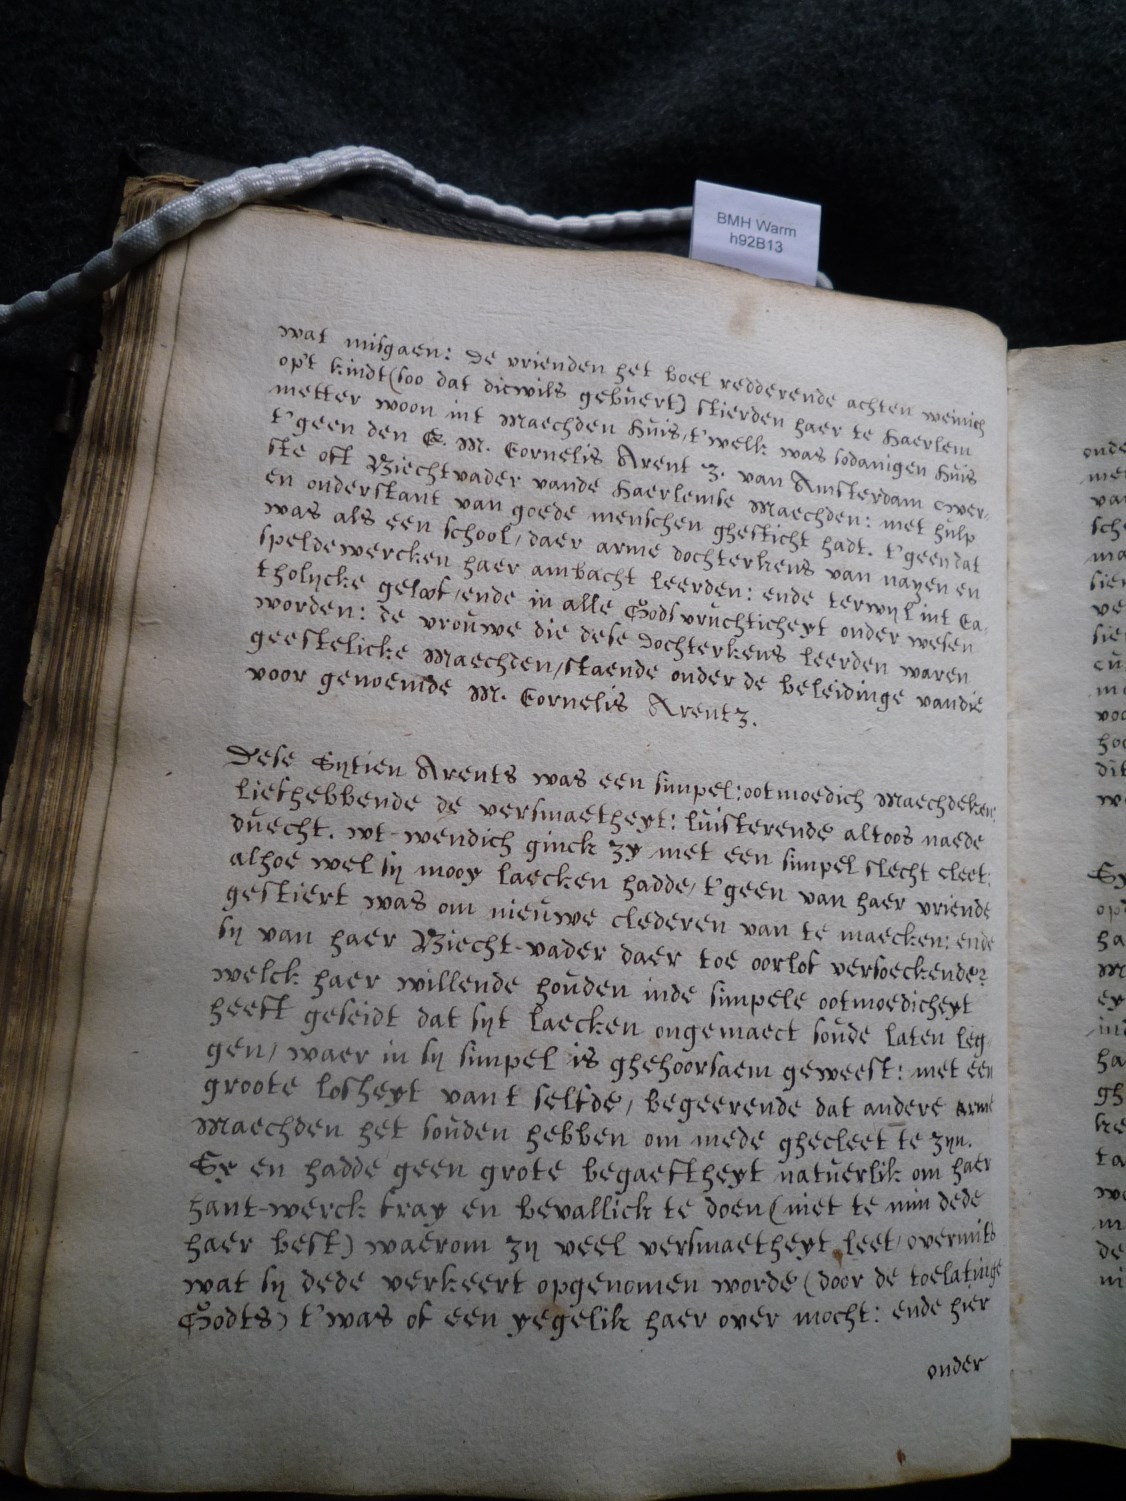 BMH Warm
h92B13
wat misgaen: De vrienden het boel redderende achten weinich
opt kindt (soo dat dicwils gebuert) stierden haer te Haerlem
metter woon int Maechden Huis, t'welk was sodanigen Huis
t'geen den E. M. Cornelis Arent z. van Amsterdam over-
ste oft Biechtvader vande Haerlemse Maechden: met hulp
en onderstant van goede menschen ghesticht hadt. t'geen dat
was als een school, daer arme dochterkens van nayen en
speldewercken haer ambacht leerden: ende terwyl int Ca-
tholycke geloof, ende in alle Godsvruchticheyt onder wesen
worden: de vrouwe die dese dochterkens leerden waren
geestelicke Maechden, staende onder de beleidinge vandie
voor genoemde M. Cornelis Arentz.
Dese Sytien Arents was een simpel: ootmoedich Maechdeken:
liefhebbende de versmaetheyt: luisterende altoos naede
duecht. wt-wendich ginck zy met een simpel slecht cleet:
alhoe wel sy mooy laecken hadde, t'geen van haer vriende
gestiert was om nieuwe clederen van te maecken: ende
sy van haer Biecht-vader daer toe oorlof versoeckende?
welck haer willende houden inde simpele ootmoedicheyt
heeft geseidt dat syt laecken ongemaect soude laten leg
gen, waer in sy simpel is ghehoorsaem geweest: met een
groote losheyt vant selfde, begeerende dat andere arme
Maechden het souden hebben om mede ghecleet te zyn.
Sy en hadde geen grote begaeftheyt natuerlik om haer
hant-werck fray en bevallick te doen (niet te min dede
haer best) waerom zy veel versmaetheyt leet, overmits
wat sy dede verkeert opgenomen worde (door de toelatinge
Godts) t'was of een yegelik haer over mocht: ende hier
onder